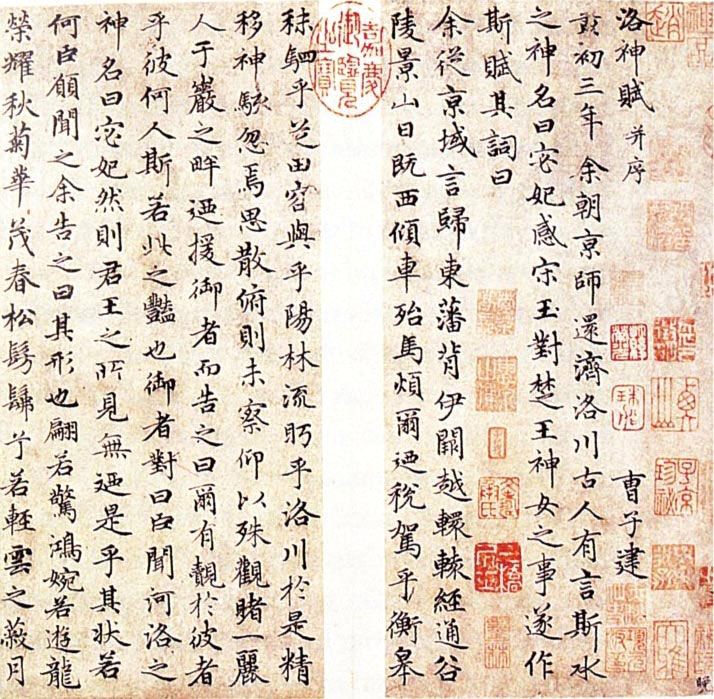 洛神賦 并序 曹子建
黃初三年余朝京師還濟洛川古人有言斯水
之神名曰宓妃感宋玉對楚王神女之事遂作
斯賦其詞曰
余從京域言歸東藩背伊闕越轘轅經通谷
陵景山日既西傾車殆馬煩爾迺稅駕乎衡皋
秣駟乎芝田容與乎陽林流眄乎洛川於是精
移神駭忽焉思散俯則未察仰以殊觀睹一麗
人于巖之畔迺援御者而告之曰爾有覿於彼者
乎彼何人斯若此之豔也御者對曰臣聞河洛之
神名曰宓妃然則君王之所見無迺是乎其狀若
何臣願聞之余告之曰其形也翩若驚鴻婉若遊龍
榮耀秋菊華茂春松髣髴兮若輕雲之蔽月